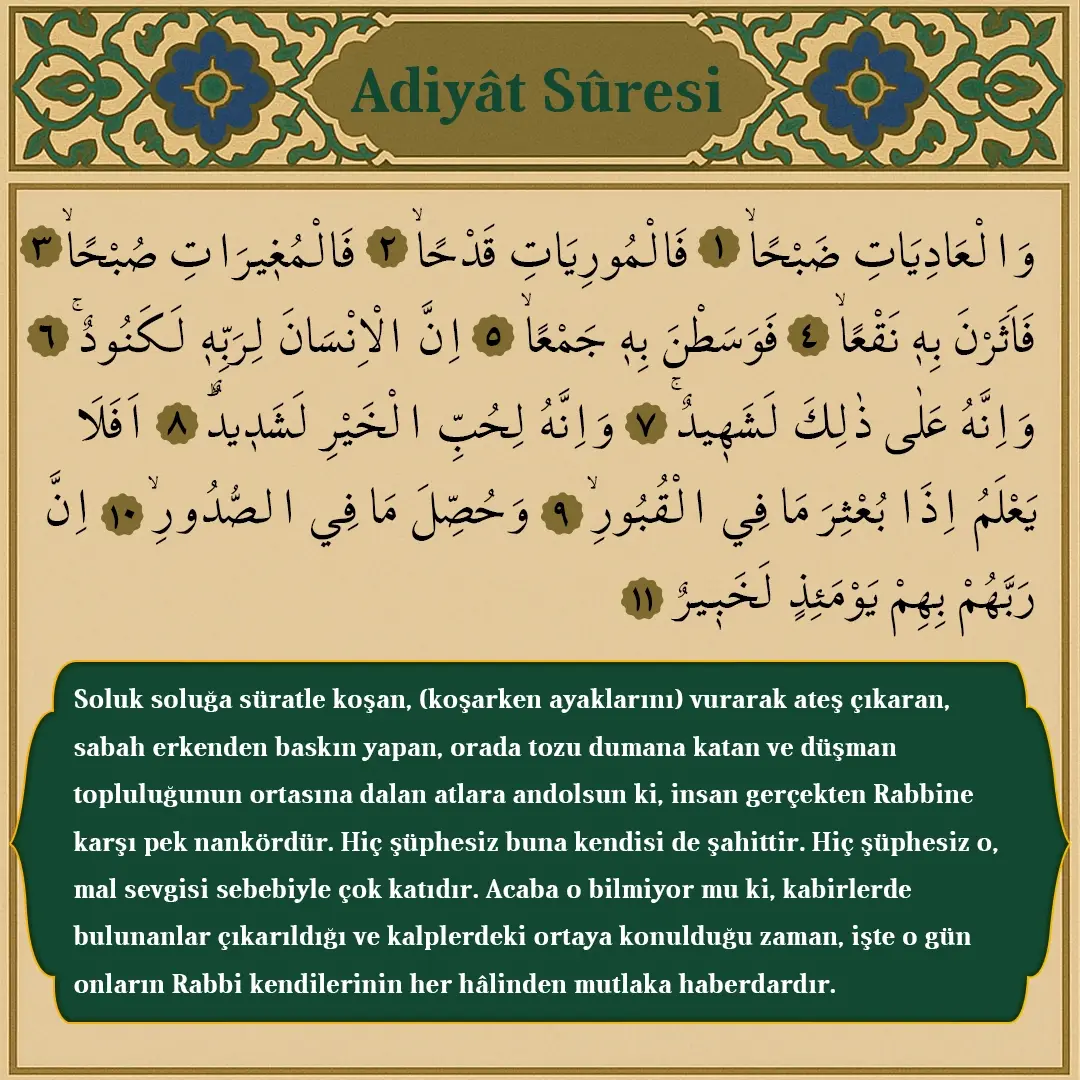 Adiyât Sûresi
وَالْعَادِيَاتِ ضَبْحًاۙ ﴿١﴾ فَالْمُورِيَاتِ قَدْحًاۙ ﴿٢﴾ فَالْمُغ۪يرَاتِ صُبْحًاۙ ﴿٣﴾
فَاَثَرْنَ بِه۪ نَقْعًاۙ ﴿٤﴾ فَوَسَطْنَ بِه۪ جَمْعًاۙ ﴿٥﴾ اِنَّ الْاِنْسَانَ لِرَبِّه۪ لَكَنُودٌۚ ﴿٦﴾
وَاِنَّهُ عَلٰى ذٰلِكَ لَشَه۪يدٌۚ ﴿٧﴾ وَاِنَّهُ لِحُبِّ الْخَيْرِ لَشَد۪يدٌۜ ﴿٨﴾ اَفَلَا
يَعْلَمُ اِذَا بُعْثِرَ مَا فِي الْقُبُورِۙ ﴿٩﴾ وَحُصِّلَ مَا فِي الصُّدُورِۙ ﴿١٠﴾ اِنَّ
رَبَّهُمْ بِهِمْ يَوْمَئِذٍ لَخَب۪يرٌ ﴿١١﴾
Soluk soluğa süratle koşan, (koşarken ayaklarını) vurarak ateş çıkaran,
sabah erkenden baskın yapan, orada tozu dumana katan ve düşman
topluluğunun ortasına dalan atlara andolsun ki, insan gerçekten Rabbine
karşı pek nankördür. Hiç şüphesiz buna kendisi de şahittir. Hiç şüphesiz o,
mal sevgisi sebebiyle çok katıdır. Acaba o bilmiyor mu ki, kabirlerde
bulunanlar çıkarıldığı ve kalplerdeki ortaya konulduğu zaman, işte o gün
onların Rabbi kendilerinin her hâlinden mutlaka haberdardır.